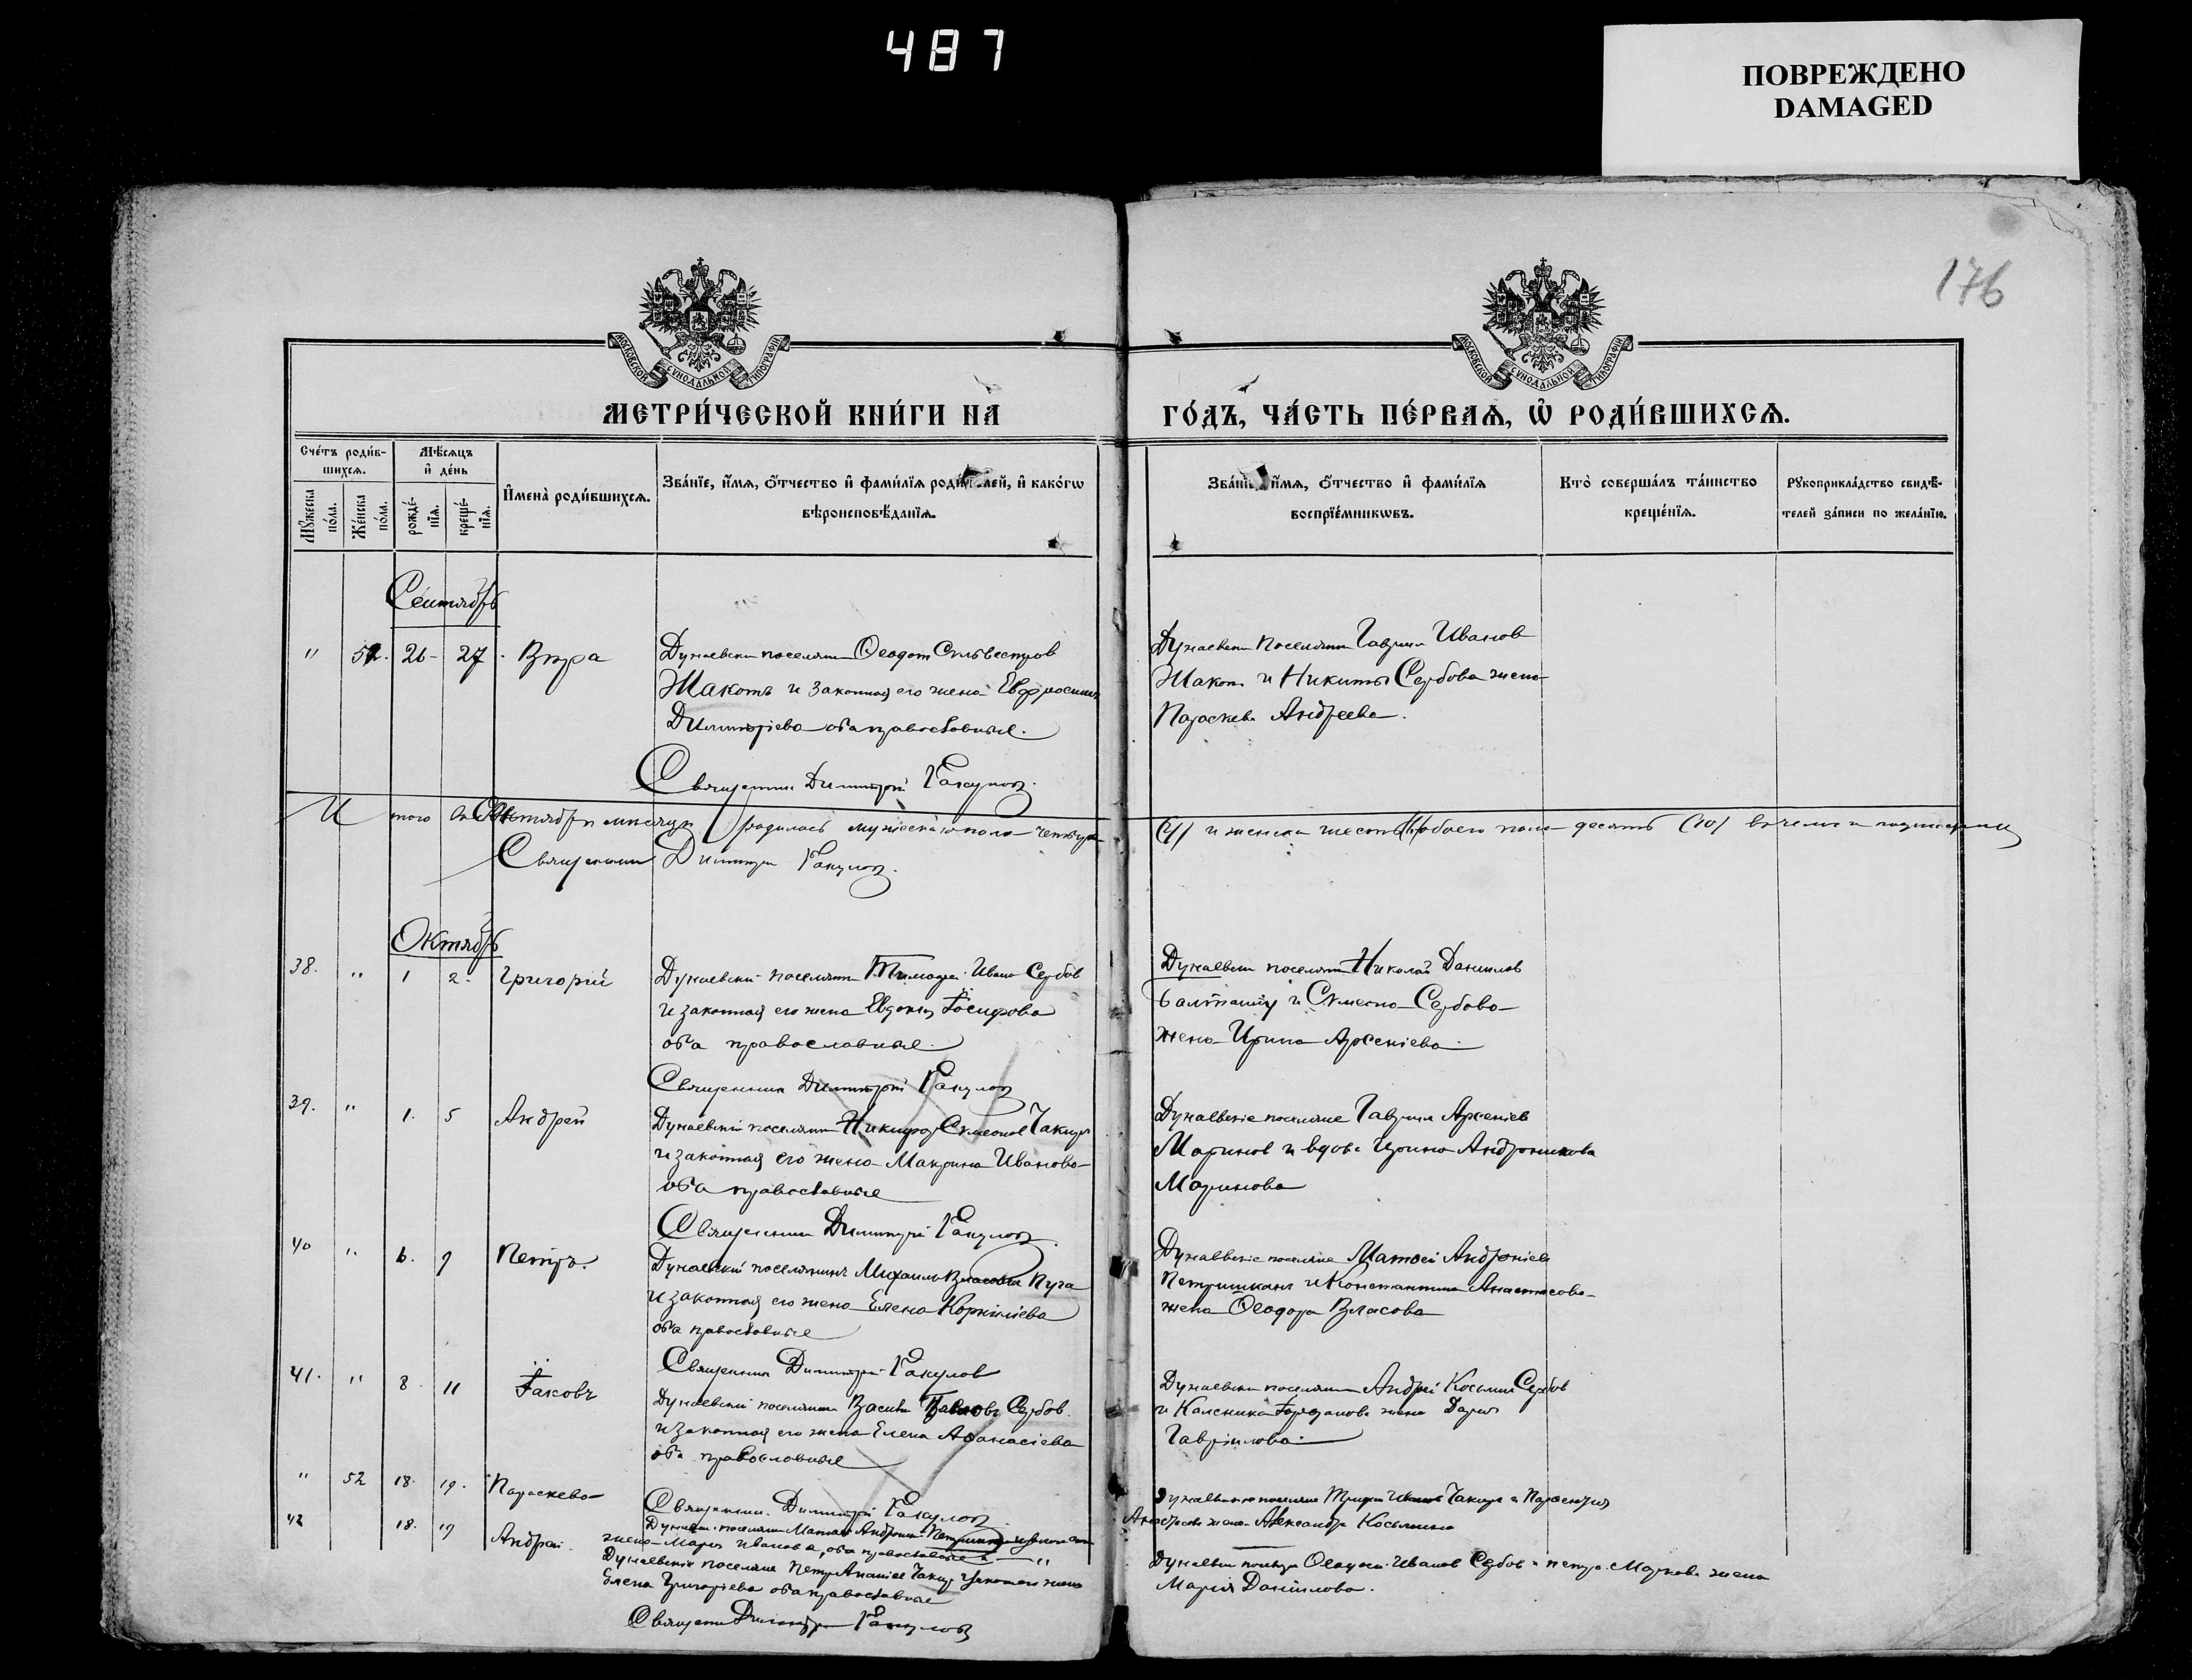 487
ПОВРЕЖДЕНО
DAMAGED
176
МОСКОВСКОЙ СѴНОДАЛЬНОЙ ТИПОГРАФІИ
МОСКОВСКОЙ СѴНОДАЛЬНОЙ ТИПОГРАФІИ
МЕТРИ́ЧЕСКОЙ КНИ́ГИ НА
ГО́ДЪ, ЧА́СТЬ ПЕ́РВАѦ, Ѡ҆ РОДИ́ВШИХСѦ.
Сче́тъ роди́в-
шихсѧ.
Мѣ́сѧцъ
и҆ де́нь
Мꙋ́жеска
по́ла.
Же́нска
по́ла.
рожде́-
нїѧ.
креще́-
нїѧ.
И҆мена̀ роди́вшихсѧ.
Зва́нїе, и҆́мѧ, ѻ҆́тчество и҆ фами́лїѧ роди́телей, и҆ како́гѡ
вѣроисповѣ́данїѧ.
Зва́нїе, и҆́мѧ, ѻ҆́тчество и҆ фами́лїѧ
воспрїе́мникѡвъ.
Кто̀ соверша́лъ та́инство
креще́нїѧ.
Рꙋкоприкла́дство свидѣ́-
телей за́писи по жела́нїю.
Сентябрь
" 51. 26 - 27 - Вѣра
Дунаевски поселянин Ѳеодот Сильвестров
Жакотъ и законная его жена Евфросиния
Димитріева оба православные.
Священник Димитрій
Дунаевски поселянин Гавриил Иванов
Жакот и Никиты Сербова жена
Параскева Андреева.
Итого въ Сентябрѣ мѣсяцѣ родилось мужескаго пола четыре
(4) и женска шесть (6) обоего пола десять (10) в чемъ и подписуемся
Священник Димитрій
Октябрь
38. " 1 2. Григорій
Дунаевскій поселянин Тимофей Иванов Сербов
и законная его жена Евдокія Іосифова
оба православные.
Священник Димитрій
Дунаевски поселянин Николай Данилов
и Симеона Сербова
жена Ирина Арсеніева.
39. " 1. 5 Андрей
Дунаевскій поселянин Никифор Симеонов Чакир
и законная его жена Макрина Иванова
оба православные
Священник Димитрій
Дунаевскіе поселяне Гавриил Арсеніев
Маринов и вдова Ирина Андроникова
Маринова
40 " 6. 9 Петръ.
Дунаевскій поселянинъ Михаилъ Власовъ Пуга
и законная его жена Елена Корниліева
оба православные
Священник Димитрій
Дунаевскіе поселяне Матѳей Андроніев
Петришкан и Константина Анастасова
жена Ѳеодора Власова
41. " 8. 11 Іаковъ
Дунаевскій поселянин Василій Павловъ Сербов.
и законная его жена Елена Аѳанасіева
оба православные
Священник Димитрій
Дунаевски поселянин Андрей Косьмин Сербов
жена Дарія
Гавріилова.
" 52 18. 19. Параскева
Дунаевски поселянин Матѳей Андроніев
жена Марія Иванова, оба православные
Дунаевскіе поселяне Иванов Чакир и
жена Александра Косьмина
42 18. 19 Андрей.
Дунаевскіе поселяне Петр Ананіев Чакир и законная жена
Елена Григоріева оба православные
Священник Димитрій
Иванов Сербов и Петра Маркова жена
Марія Даніилова.